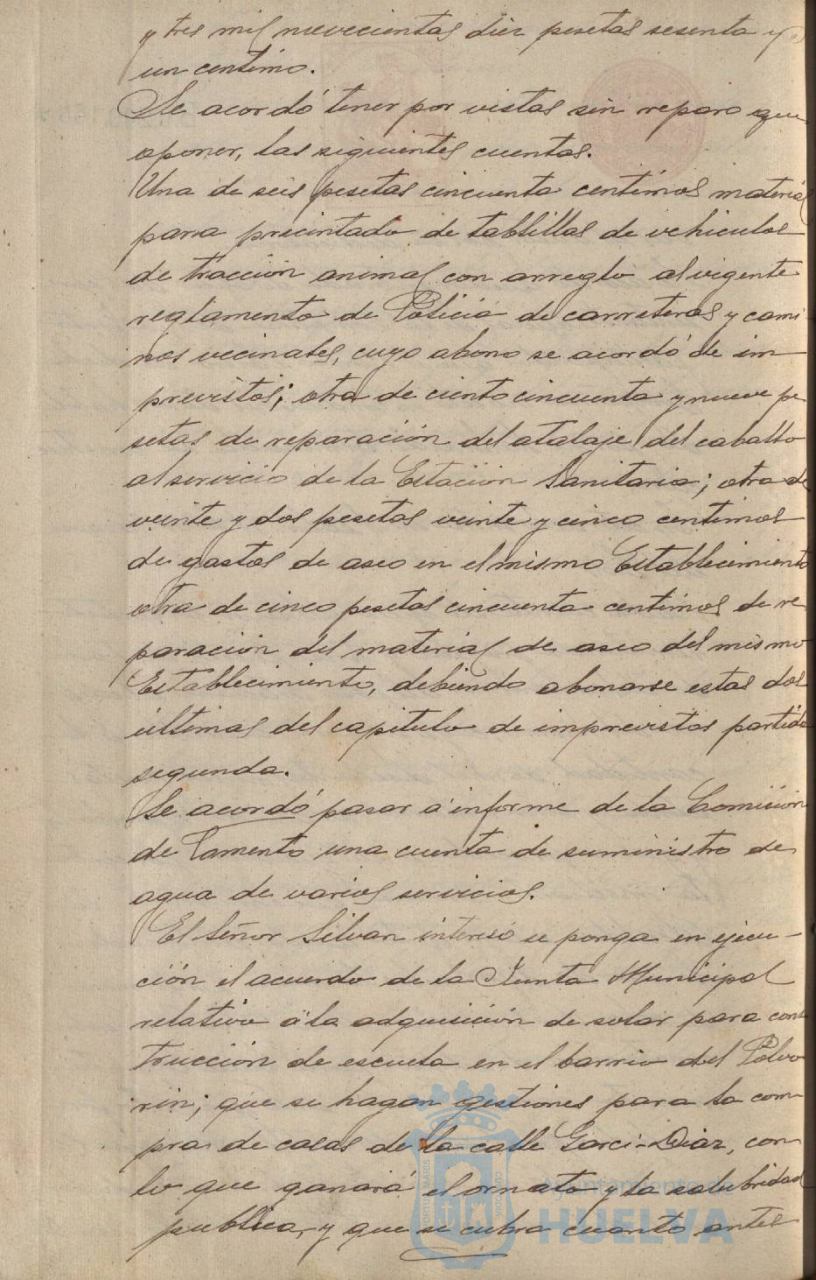 y tres mil novecientas diez pesetas sesenta y
un centimo.
Se acordó tener por vistas sin reparo que
oponer, las siguientes cuentas.
Una de seis pesetas cincuenta centimos material
para precintado de tablillas de vehiculos
de tracción animal con arreglo al vigente
reglamento de Policia de carreteras y cami-
nos vecinales, cuyo abono se acordó de im-
previstos; otra de ciento cincuenta y nueve pe
setas de reparación del atalaje del caballo
al servicio de la Estación Sanitaria; otra de
veinte y dos pesetas veinte y cinco centimos
de gastos de aseo en el mismo Establecimiento
otra de cinco pesetas cincuenta centimos de re
paración del material de aseo del mismo
Establecimiento, debiendo abonarse estas dos
últimas del capitulo de imprevistos partida
segunda.
Se acordó pasar a informe de la Comisión
de Fomento una cuenta de suministro de
agua de varios servicios.
El Señor Silvan interesó se ponga en ejecu-
ción el acuerdo de la Junta Municipal
relativo á la adquisición de solar para cons
trucción de escuela en el barrio del Polvo
rin; que se hagan gestiones para la com-
pra de casas de la calle Garci-Diaz, con
lo que ganará el ornato y la salubridad
publica, y que se cubra cuanto antes
Ayuntamiento de
HUELVA